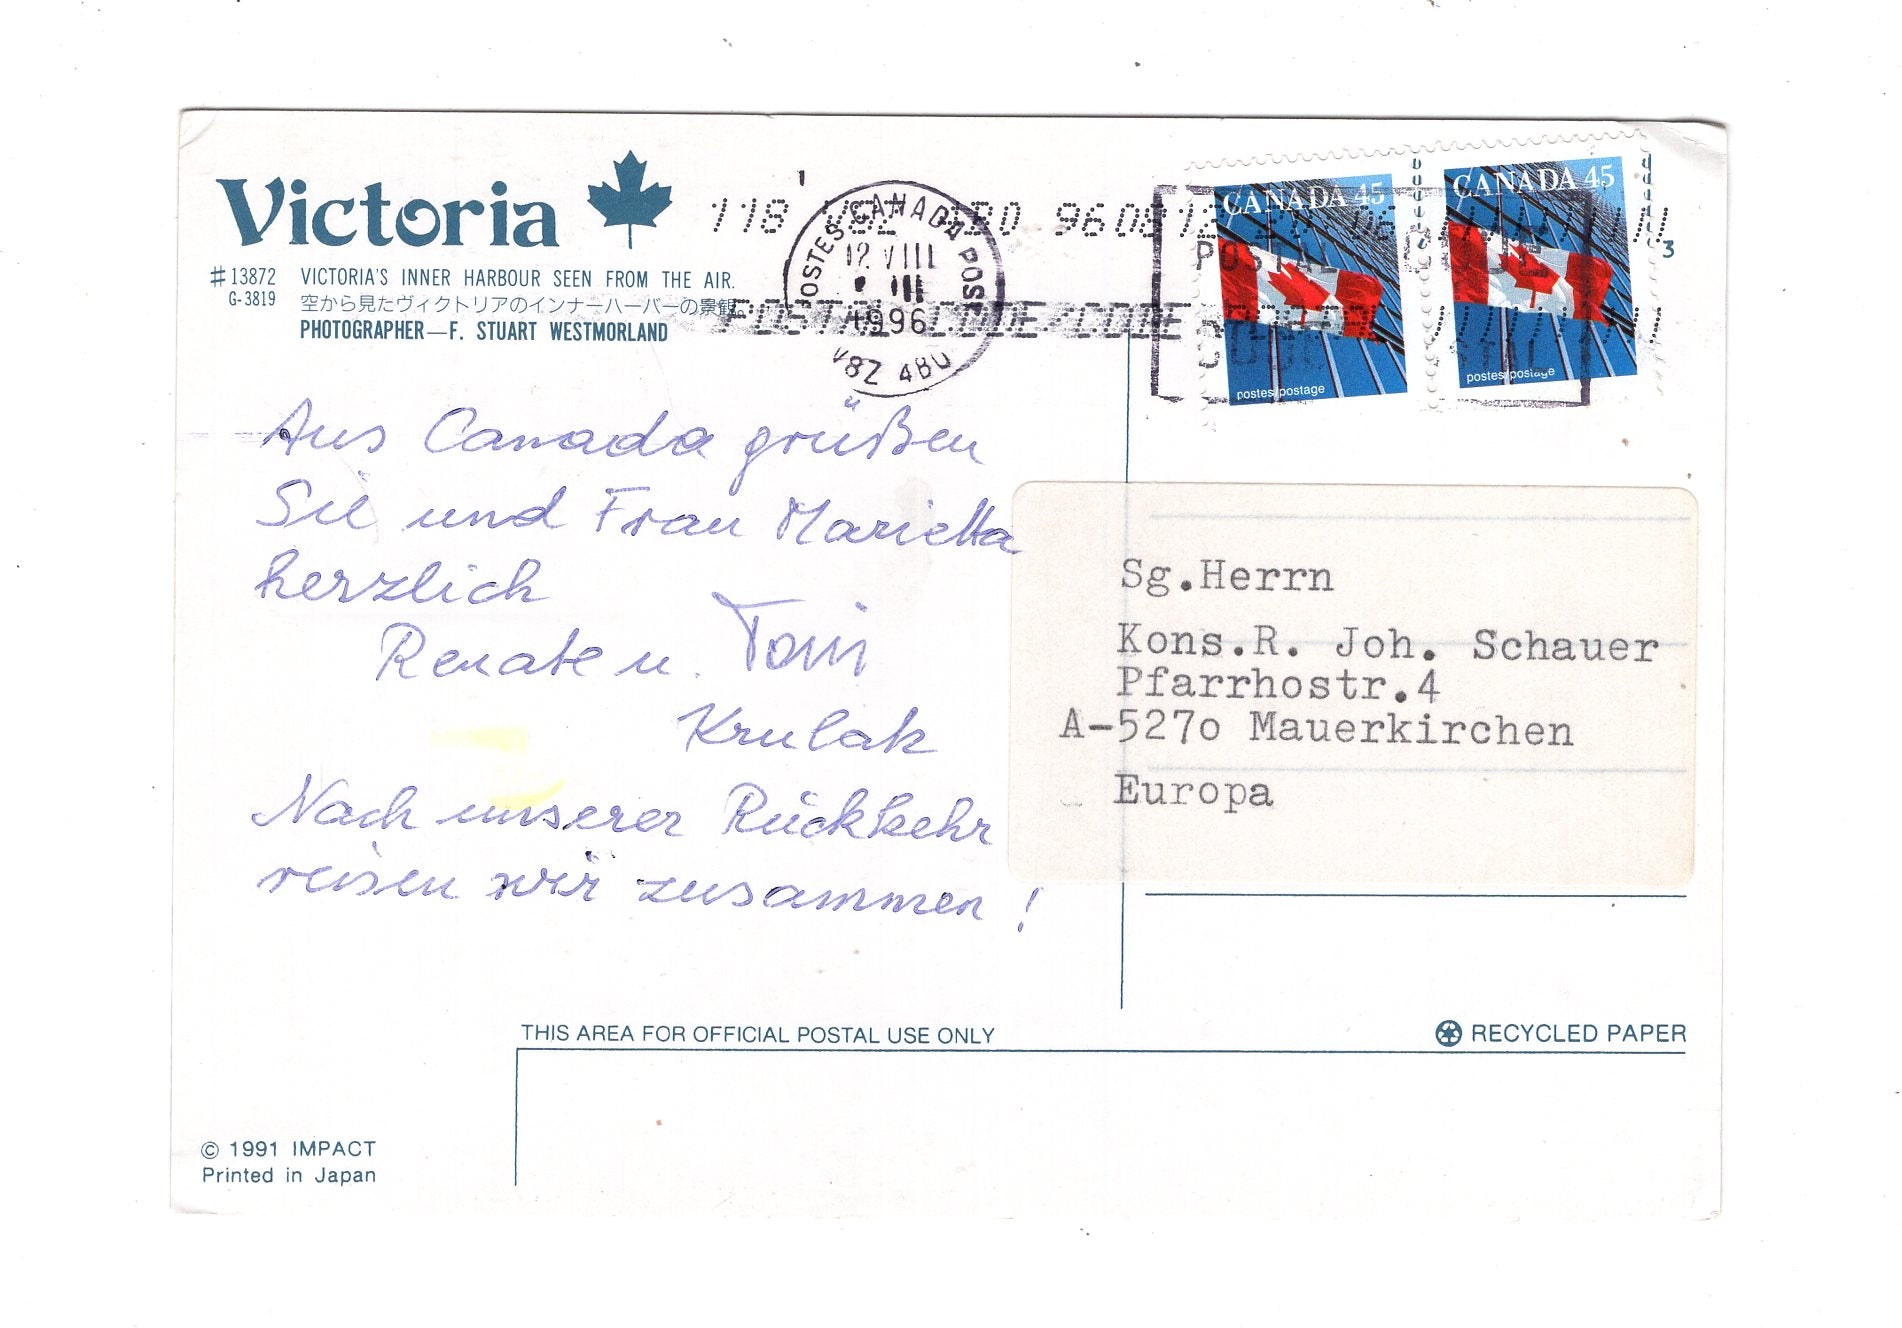 Victoria
#13872 VICTORIA'S INNER HARBOUR SEEN FROM THE AIR.
G-3819 空から見たヴィクトリアのインナーハーバーの景観。
PHOTOGRAPHER—F. STUART WESTMORLAND
118
9608
POSTES CANADA POST
12 VIII
1996
V8Z 4B0
POSTAL CODE/CODE
POSTAL CODE
CANADA 45
postes/postage
CANADA 45
postes/postage
3
Aus Canada grüßen
Sie und Frau Marietta
herzlich
Renate u. Toni
Krulak
Nach unserer Rückkehr
reisen wir zusammen!
Sg.Herrn
Kons.R. Joh. Schauer
Pfarrhostr.4
A-527o Mauerkirchen
Europa
THIS AREA FOR OFFICIAL POSTAL USE ONLY
RECYCLED PAPER
© 1991 IMPACT
Printed in Japan